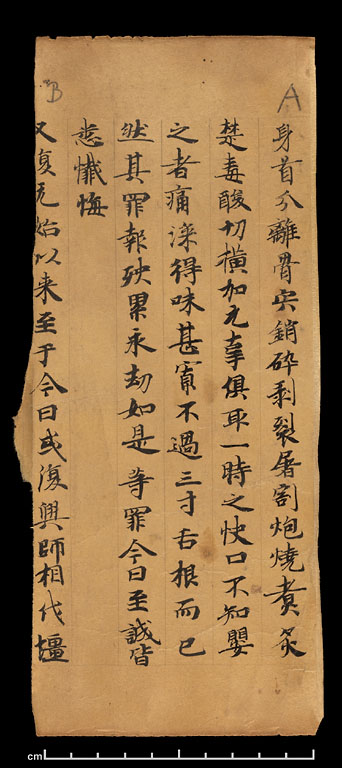 A
身首分離骨宍銷碎剥裂屠割炮燒煮炙
楚毒酸切橫加无辜俱取一時之快口不知嬰
之者痛深得味甚寡不過三寸舌根而已
然其罪報殃累永劫如是等罪今日至誠皆
悉懺悔
B
又復无始以来至于今日或復興師相伐壃
cm